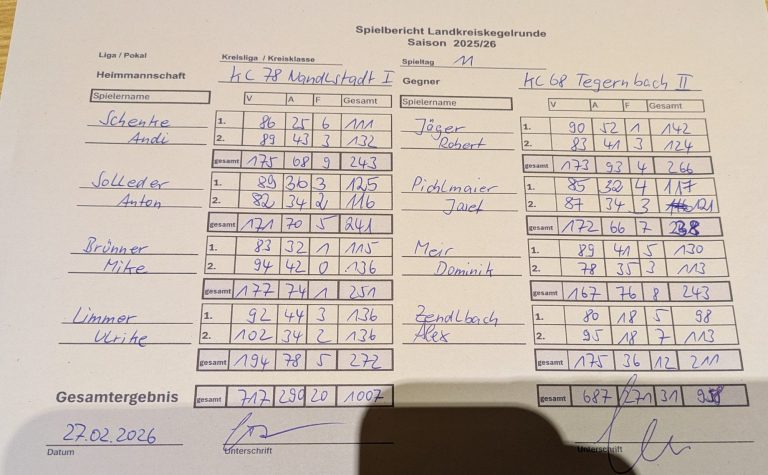 Spielbericht Landkreiskegelrunde
Saison 2025/26
Liga / Pokal Kreisliga / Kreisklasse Spieltag 11
Heimmannschaft KC 78 Nandlstadt I Gegner KC 68 Tegernbach II
Spielername V A F Gesamt Spielername V A F Gesamt
Schenke 1. 86 25 6 111 Jäger 1. 90 52 1 142
Andi 2. 89 43 3 132 Robert 2. 83 41 3 124
gesamt 175 68 9 243 gesamt 173 93 4 266
Solleder 1. 89 36 3 125 Pichlmaier 1. 85 32 4 117
Anton 2. 82 34 2 116 Josef 2. 87 34 3 121
gesamt 171 70 5 241 gesamt 172 66 7 238
Brünner 1. 83 32 1 115 Meir 1. 89 41 5 130
Mike 2. 94 42 0 136 Dominik 2. 78 35 3 113
gesamt 177 74 1 251 gesamt 167 76 8 243
Limmer 1. 92 44 3 136 Zendlbach 1. 80 18 5 98
Ulrike 2. 102 34 2 136 Alex 2. 95 18 7 113
gesamt 194 78 5 272 gesamt 175 36 12 211
Gesamtergebnis gesamt 717 290 20 1007 gesamt 687 271 31 958
27.02.2026
Datum Unterschrift Unterschrift